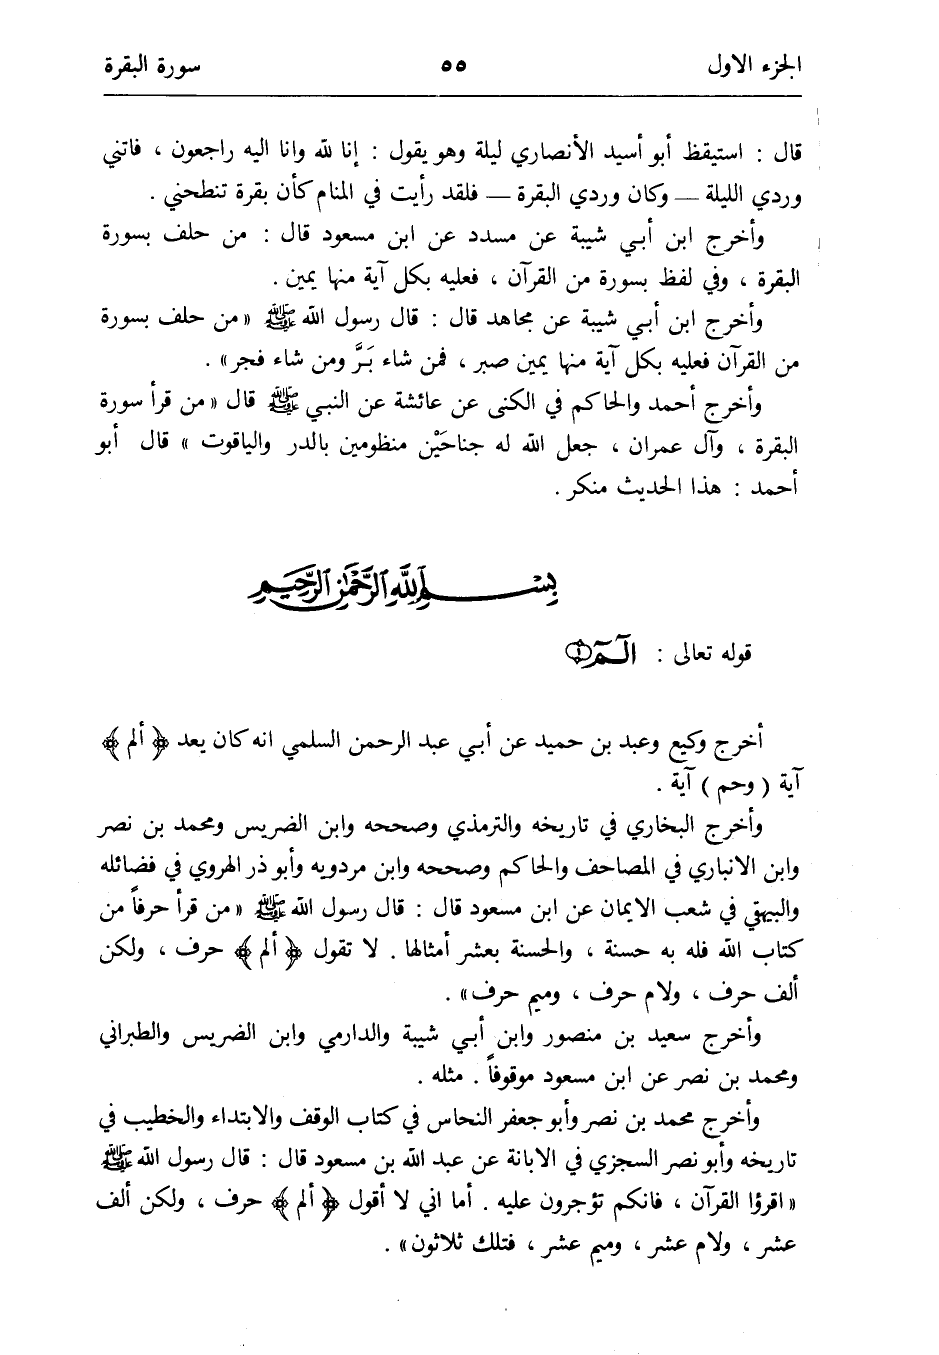 الجزء الاول ٥٥ سورة البقرة
قال : استيقظ أبو أسيد الأنصاري ليلة وهو يقول : إنا لله وانا اليه راجعون ، فاتني
وردي الليلة — وكان وردي البقرة — فلقد رأيت في المنام كأن بقرة تنطحني .
وأخرج ابن أبي شيبة عن مسدد عن ابن مسعود قال : من حلف بسورة
البقرة ، وفي لفظ بسورة من القرآن ، فعليه بكل آية منها يمين .
وأخرج ابن أبي شيبة عن مجاهد قال : قال رسول الله ﷺ «من حلف بسورة
من القرآن فعليه بكل آية منها يمين صبر ، فمن شاء بَرَّ ومن شاء فجر» .
وأخرج أحمد والحاكم في الكنى عن عائشة عن النبي ﷺ قال «من قرأ سورة
البقرة ، وآل عمران ، جعل الله له جناحَيْن منظومين بالدر والياقوت » قال أبو
أحمد : هذا الحديث منكر .
بِسْمِ اللَّهِ الرَّحْمَٰنِ الرَّحِيمِ
قوله تعالى : الٓمٓ ﴿١﴾
أخرج وكيع وعبد بن حميد عن أبي عبد الرحمن السلمي انه كان يعد ﴿ ألم ﴾
آية ( وحم ) آية .
وأخرج البخاري في تاريخه والترمذي وصححه وابن الضريس ومحمد بن نصر
وابن الانباري في المصاحف والحاكم وصححه وابن مردويه وأبو ذر الهروي في فضائله
والبيهقي في شعب الايمان عن ابن مسعود قال : قال رسول الله ﷺ «من قرأ حرفاً من
كتاب الله فله به حسنة ، والحسنة بعشر أمثالها . لا تقول ﴿ ألم ﴾ حرف ، ولكن
ألف حرف ، ولام حرف ، وميم حرف» .
وأخرج سعيد بن منصور وابن أبي شيبة والدارمي وابن الضريس والطبراني
ومحمد بن نصر عن ابن مسعود موقوفاً . مثله .
وأخرج محمد بن نصر وأبو جعفر النحاس في كتاب الوقف والابتداء والخطيب في
تاريخه وأبو نصر السجزي في الابانة عن عبد الله بن مسعود قال : قال رسول الله ﷺ
«اقرؤا القرآن ، فانكم تؤجرون عليه . أما اني لا أقول ﴿ ألم ﴾ حرف ، ولكن ألف
عشر ، ولام عشر ، وميم عشر ، فتلك ثلاثون» .